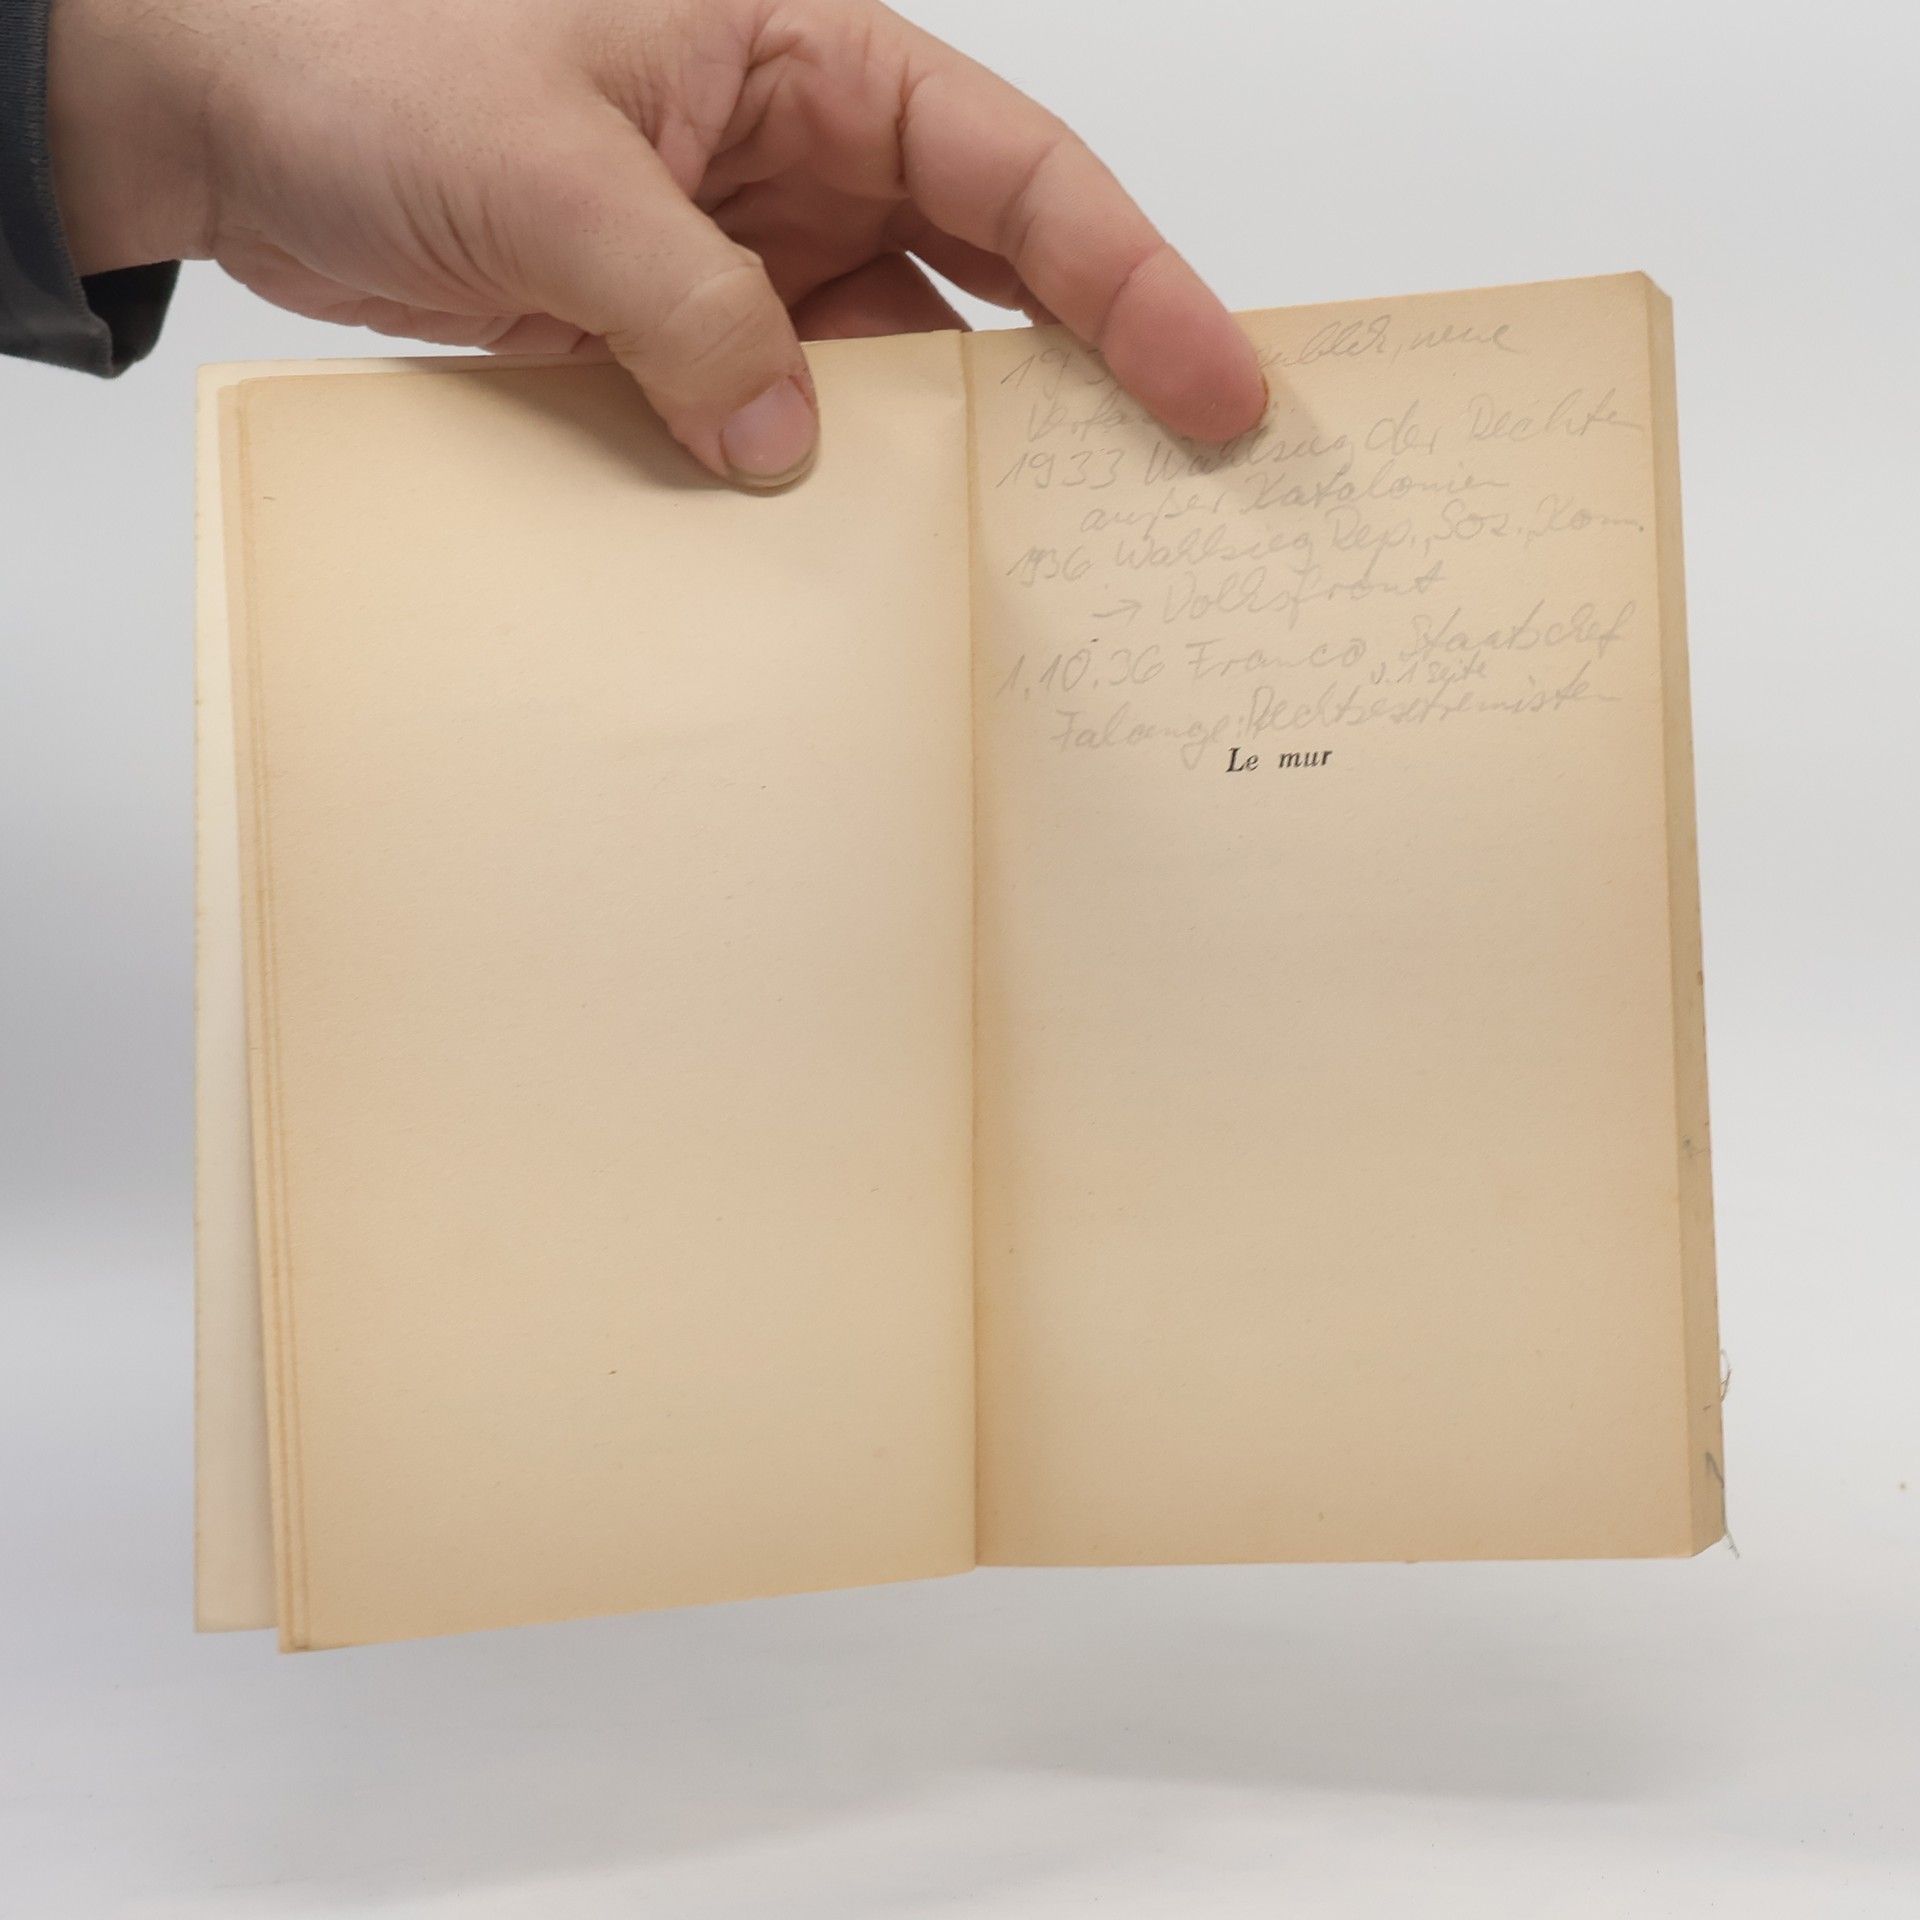 193 ublik, neue
Verfa
1933 Wahlsieg der Rechten
außer Katalonien
1936 Wahlsieg Rep., Soz., Kom.
→ Volksfront
1.10.36 Franco Staatschef
v. 1 Seite
Falange: Rechtsextremisten
Le mur